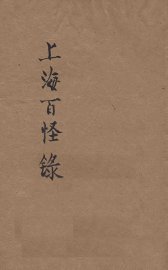 上海百怪錄